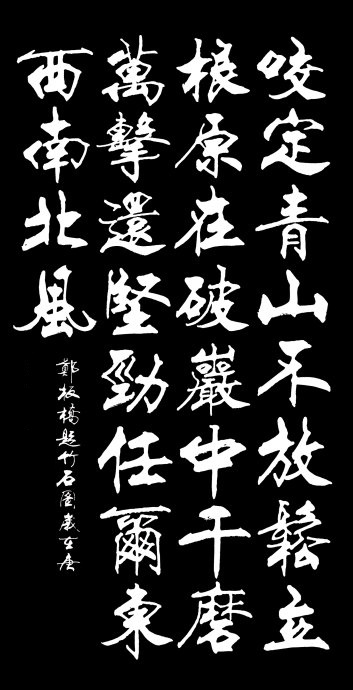 咬定青山不放鬆立
根原在破巖中千磨
萬擊還堅勁任爾東
西南北風
鄭板橋題竹石圖歲在